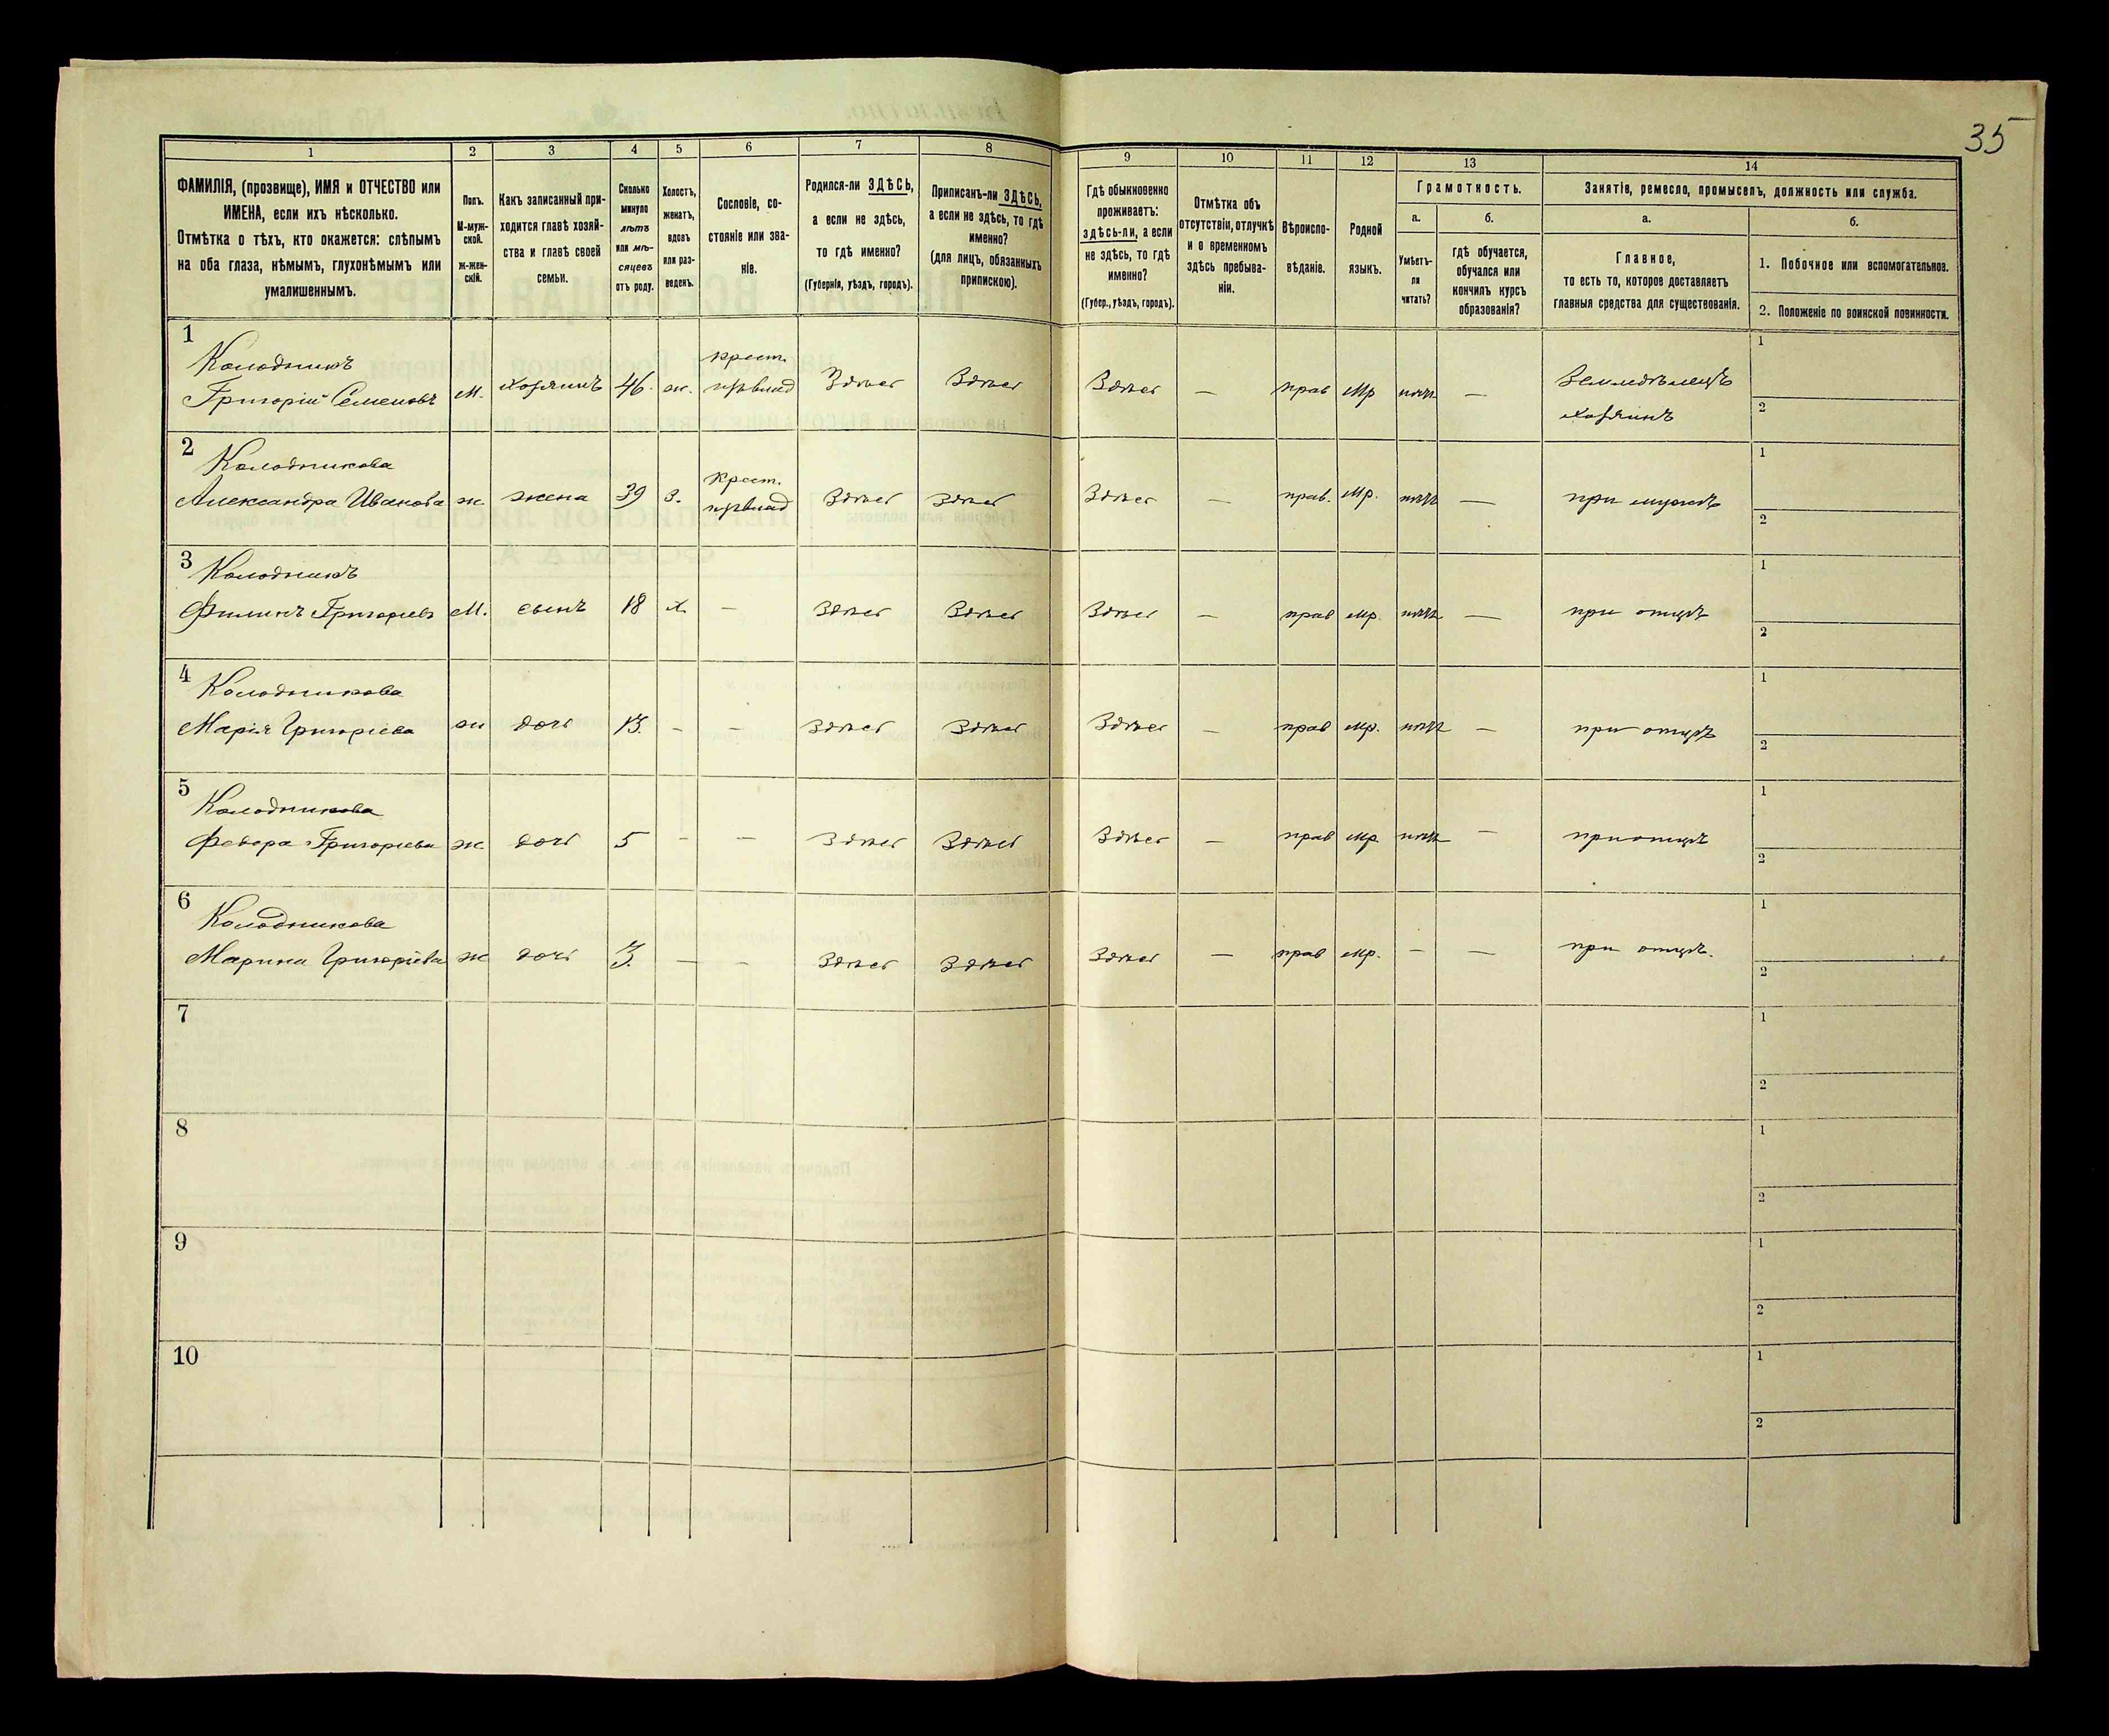 35
1
2
3
4
5
6
7
8
9
10
11
12
13
14
ФАМИЛІЯ, (прозвище), ИМЯ и ОТЧЕСТВО или
ИМЕНА, если ихъ нѣсколько.
Отмѣтка о тѣхъ, кто окажется: слѣпымъ
на оба глаза, нѣмымъ, глухонѣмымъ или
умалишеннымъ.
Полъ.
М-муж-
ской.
Ж-жен-
скій.
Какъ записанный при-
ходится главѣ хозяй-
ства и главѣ своей
семьи.
Сколько
минуло
лѣтъ
или мѣ-
сяцевъ
отъ роду.
Холостъ,
женатъ,
вдовъ
или раз-
веденъ.
Сословіе, со-
стояніе или зва-
ніе.
Родился-ли ЗДѢСЬ,
а если не здѣсь,
то гдѣ именно?
(Губернія, уѣздъ, городъ).
Приписанъ-ли ЗДѢСЬ,
а если не здѣсь, то гдѣ
именно?
(для лицъ, обязанныхъ
припискою).
Гдѣ обыкновенно
проживаетъ:
здѣсь-ли, а если
не здѣсь, то гдѣ
именно?
(Губер., уѣздъ, городъ).
Отмѣтка объ
отсутствіи, отлучкѣ
и о временномъ
здѣсь пребыва-
ніи.
Вѣроиспо-
вѣданіе.
Родной
языкъ.
Грамотность.
а.
Умѣетъ-
ли
читать?
б.
гдѣ обучается,
обучался или
кончилъ курсъ
образованія?
Занятіе, ремесло, промыселъ, должность или служба.
а.
Главное,
то есть то, которое доставляетъ
главныя средства для существованія.
б.
1. Побочное или вспомогательное.
2. Положеніе по воинской повинности.
1
Колодникъ
Григорій Семеновъ
М.
хозяинъ
46.
ж.
крест.
Здѣсь
Здѣсь
Здѣсь
—
прав
мр
нѣтъ
—
Земледѣлецъ
хозяинъ
1
2
2
Колодникова
Александра Иванова
ж
жена
39
з.
крест.
Здѣсь
Здѣсь
Здѣсь
—
прав.
мр.
нѣтъ
—
при мужѣ
1
2
3
Колодникъ
Филипъ Григорьевъ
М.
сынъ
18
х
—
Здѣсь
Здѣсь
Здѣсь
—
прав
мр.
нѣтъ
—
при отцѣ
1
2
4
Колодникова
Марія Григоріева
ж
дочь
13.
-
-
Здѣсь
Здѣсь
Здѣсь
—
прав
мр.
нѣтъ
—
при отцѣ
1
2
5
Колодникова
Федора Григорьева
ж
дочь
5
-
—
Здѣсь
Здѣсь
Здѣсь
—
прав
мр.
нѣтъ
—
при отцѣ
1
2
6
Колодникова
Марина Григорьева
ж
дочь
3.
—
-
Здѣсь
Здѣсь
Здѣсь
—
прав
мр.
-
—
при отцѣ.
1
2
7
1
2
8
1
2
9
1
2
10
1
2